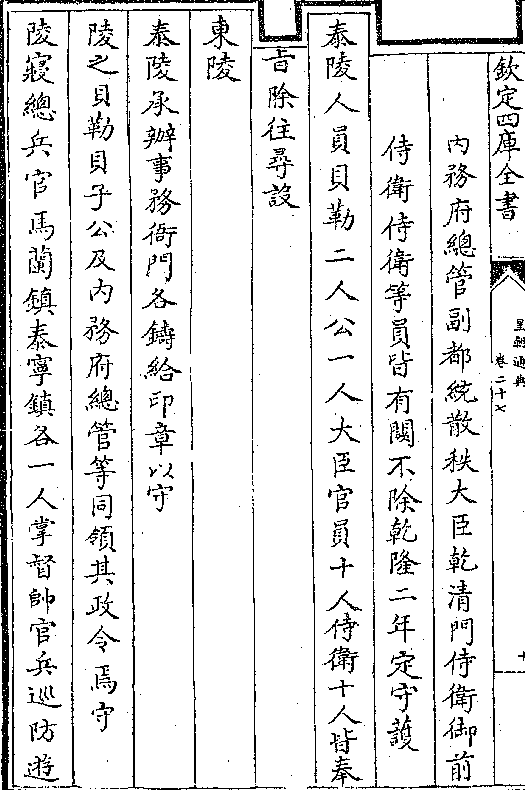 欽定四庫全書
皇朝通典
卷二十七
十
內務府總管副都統散秩大臣乾清門侍衛御前
侍衛侍衛等員皆有闕不除乾隆二年定守護
泰陵人員貝勒二人公一人大臣官員十人侍衛十人皆奉
旨除往尋設
東陵
泰陵承辦事務衙門各鑄給印章以守
陵之貝勒貝子公及內務府總管等同領其政令焉守
陵寢總兵官馬蘭鎮泰寧鎮各一人掌督帥官兵巡防遊